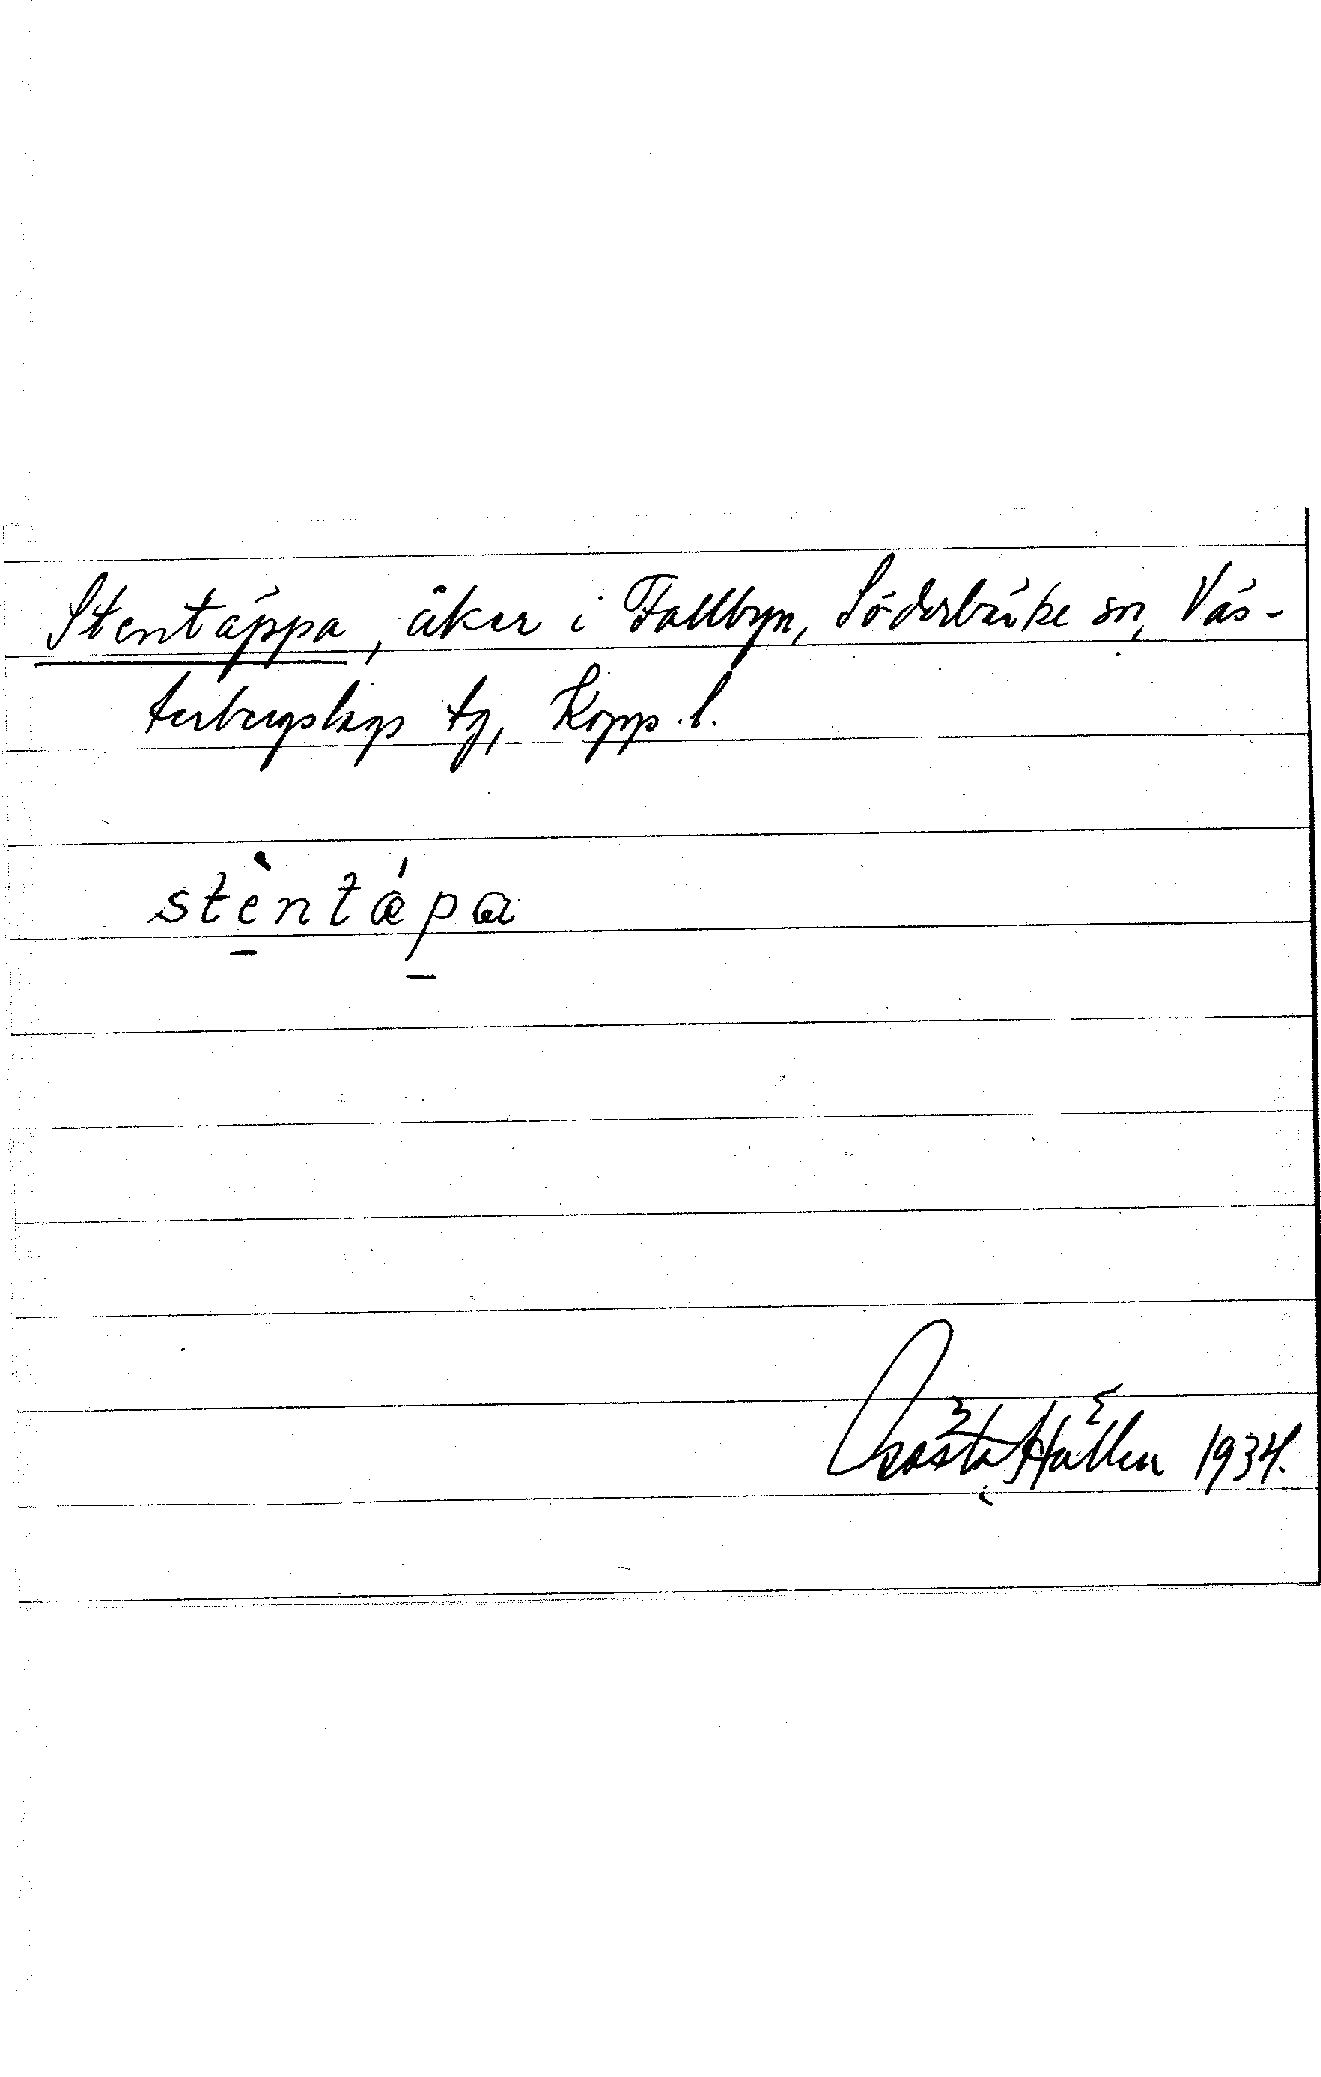 Stentäppa, åker i Fallbyn, Söderbärke sn, Väs-
terbergslags tg, Kopp. l.
stèntǽpa
Gösta Hållen 1934.